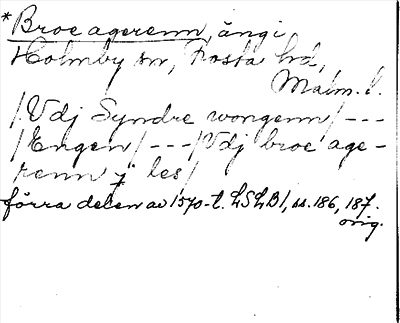 *Broe agerenn, ängi,
Holmby sn, Frosta hd,
Malm. l.
/Vdj Syndre wongenn/---
/Engen/---/Vdj broe age-
renn j les/
förra delen av 1570-t. LSLB1, ss. 186, 187.
orig.